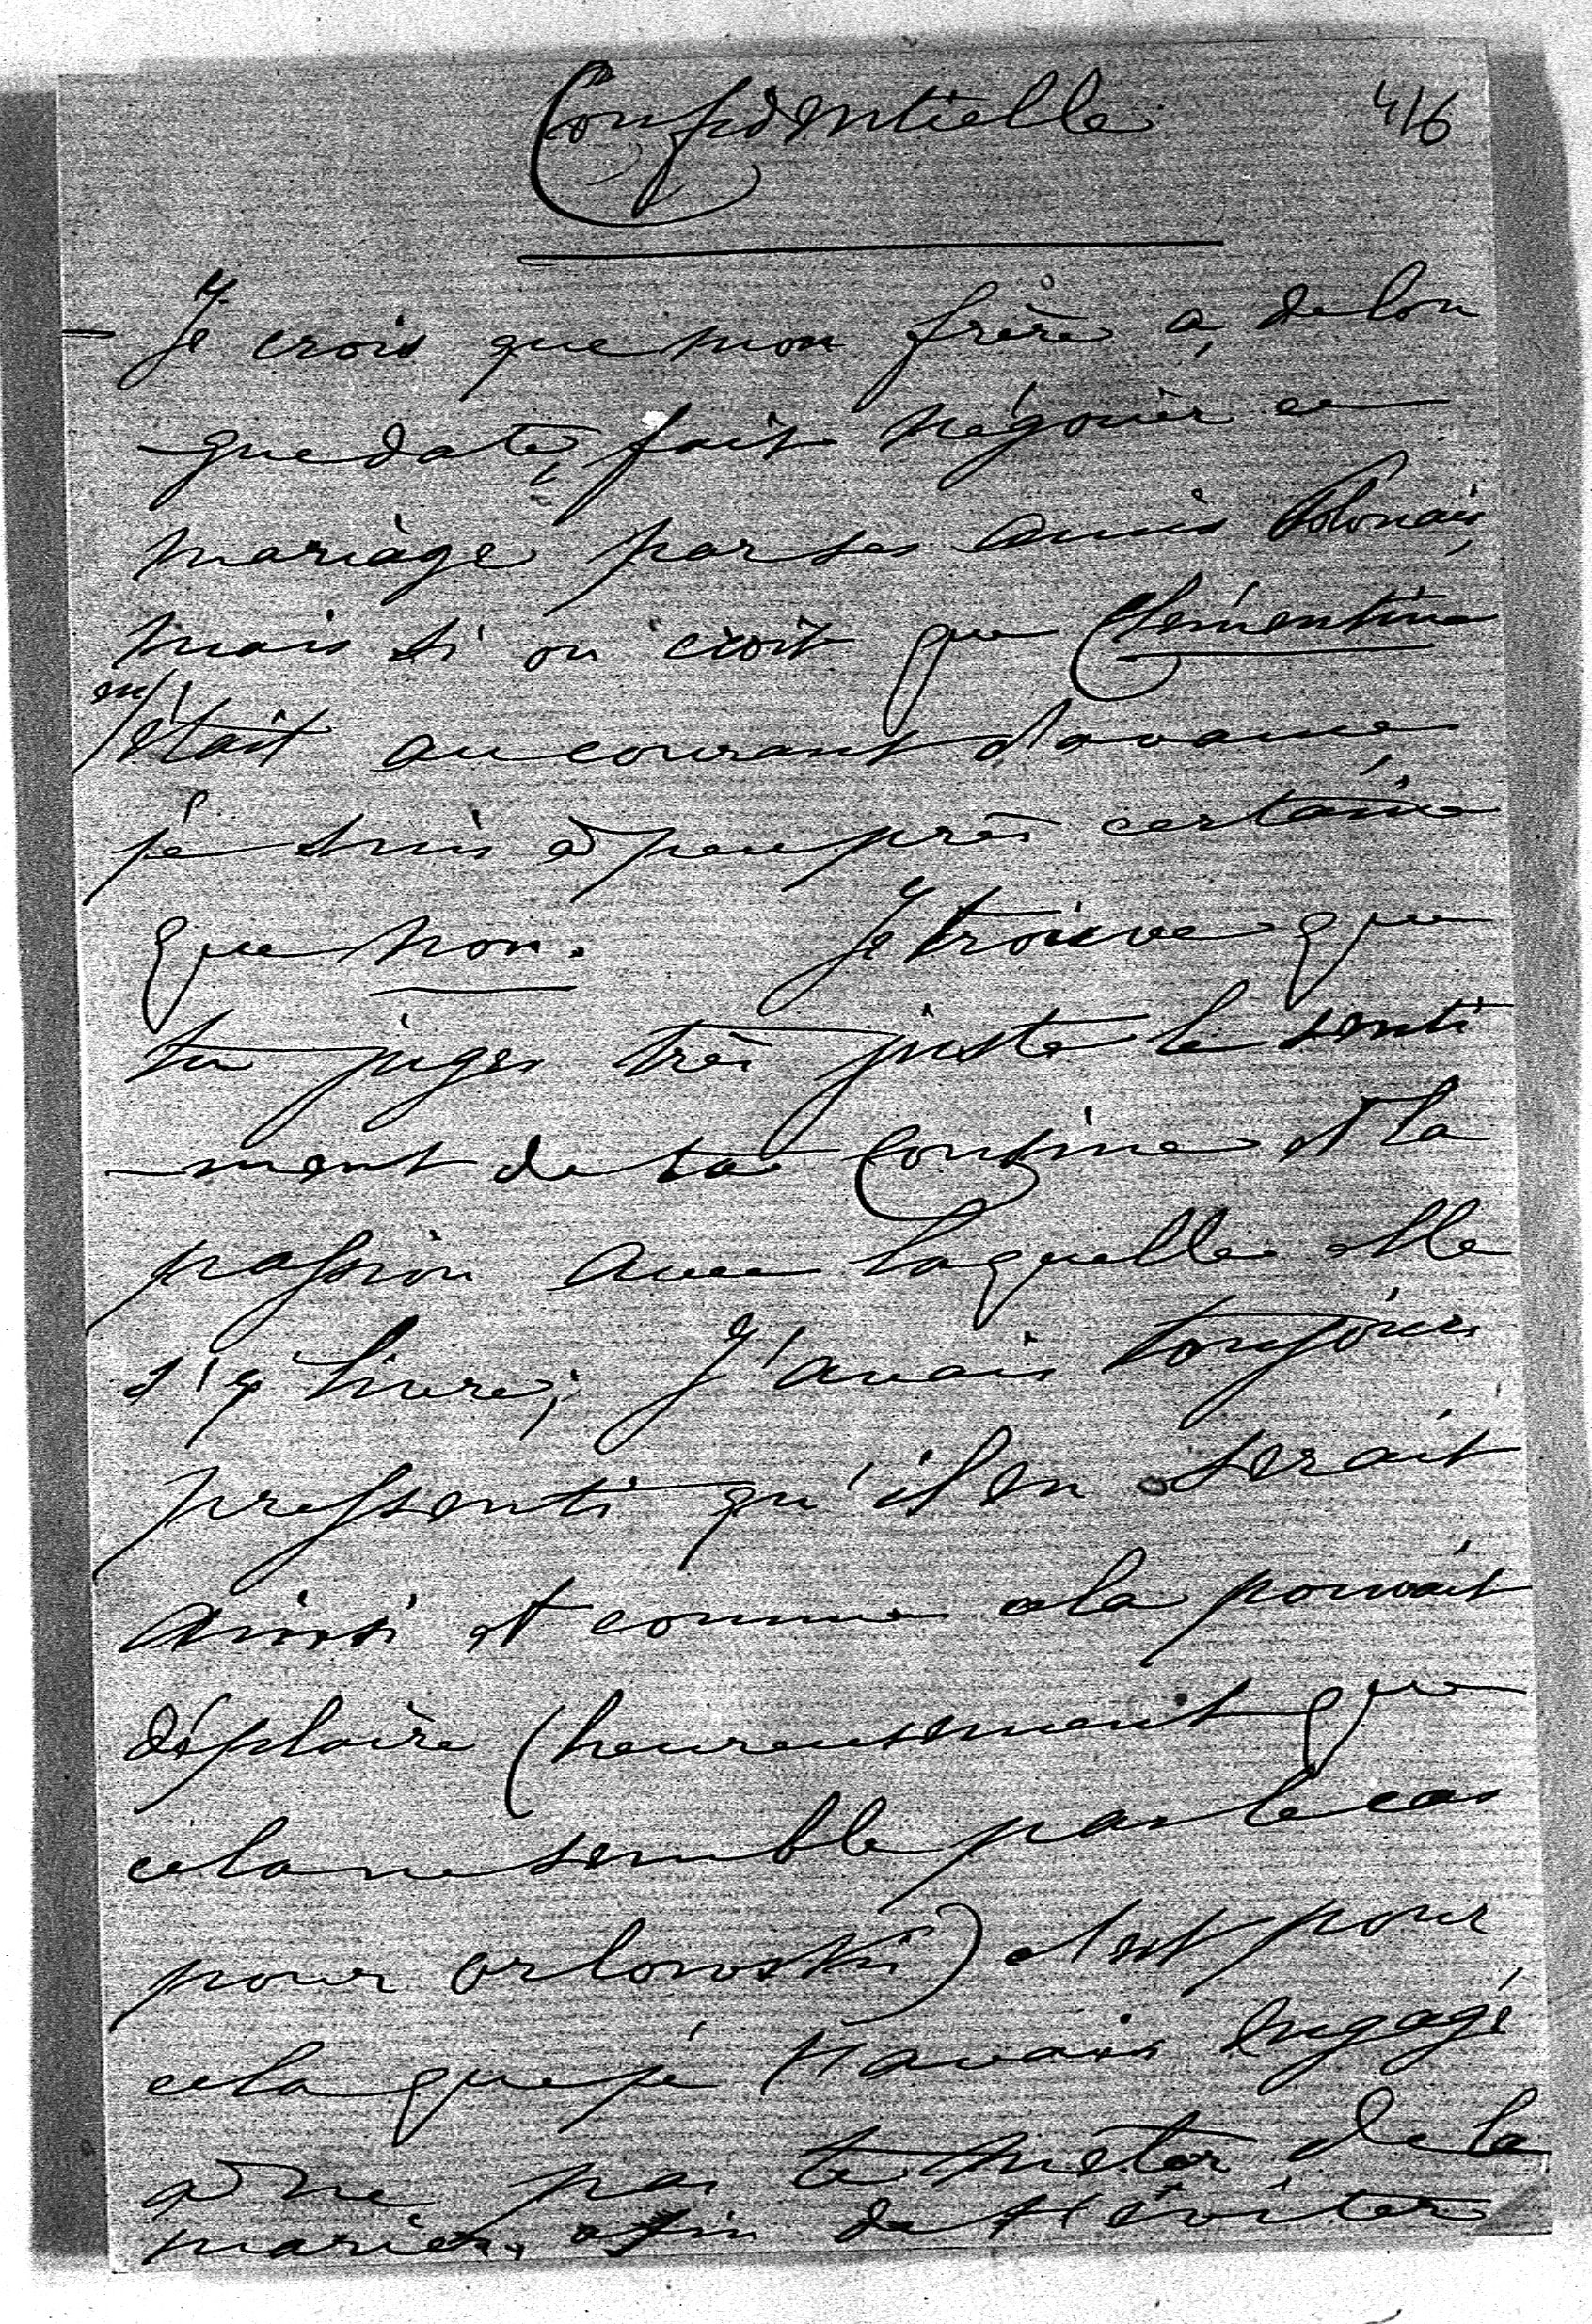 Confidentielle 416
— Je crois que mon frère a, de lon
-gue date, fait négocier ce
mariage par ses amis Polonais,
mais si on croit que Clémentine
en/ était au courant d'avance,
je suis à peu près certaine
que non. Je trouve que
tu juges très juste le senti
-ment de ta Cousine et la
passion avec laquelle elle
s'y livre; J'avais toujours
pressenti qu'il en serait
ainsi et comme cela pouvait
déplaire (heureusement que
cela ne semble pas le cas
pour Orlowski) c'est pour
cela que je t'avais engagé
à ne pas te mêler de la
marier, afin de t'éviter